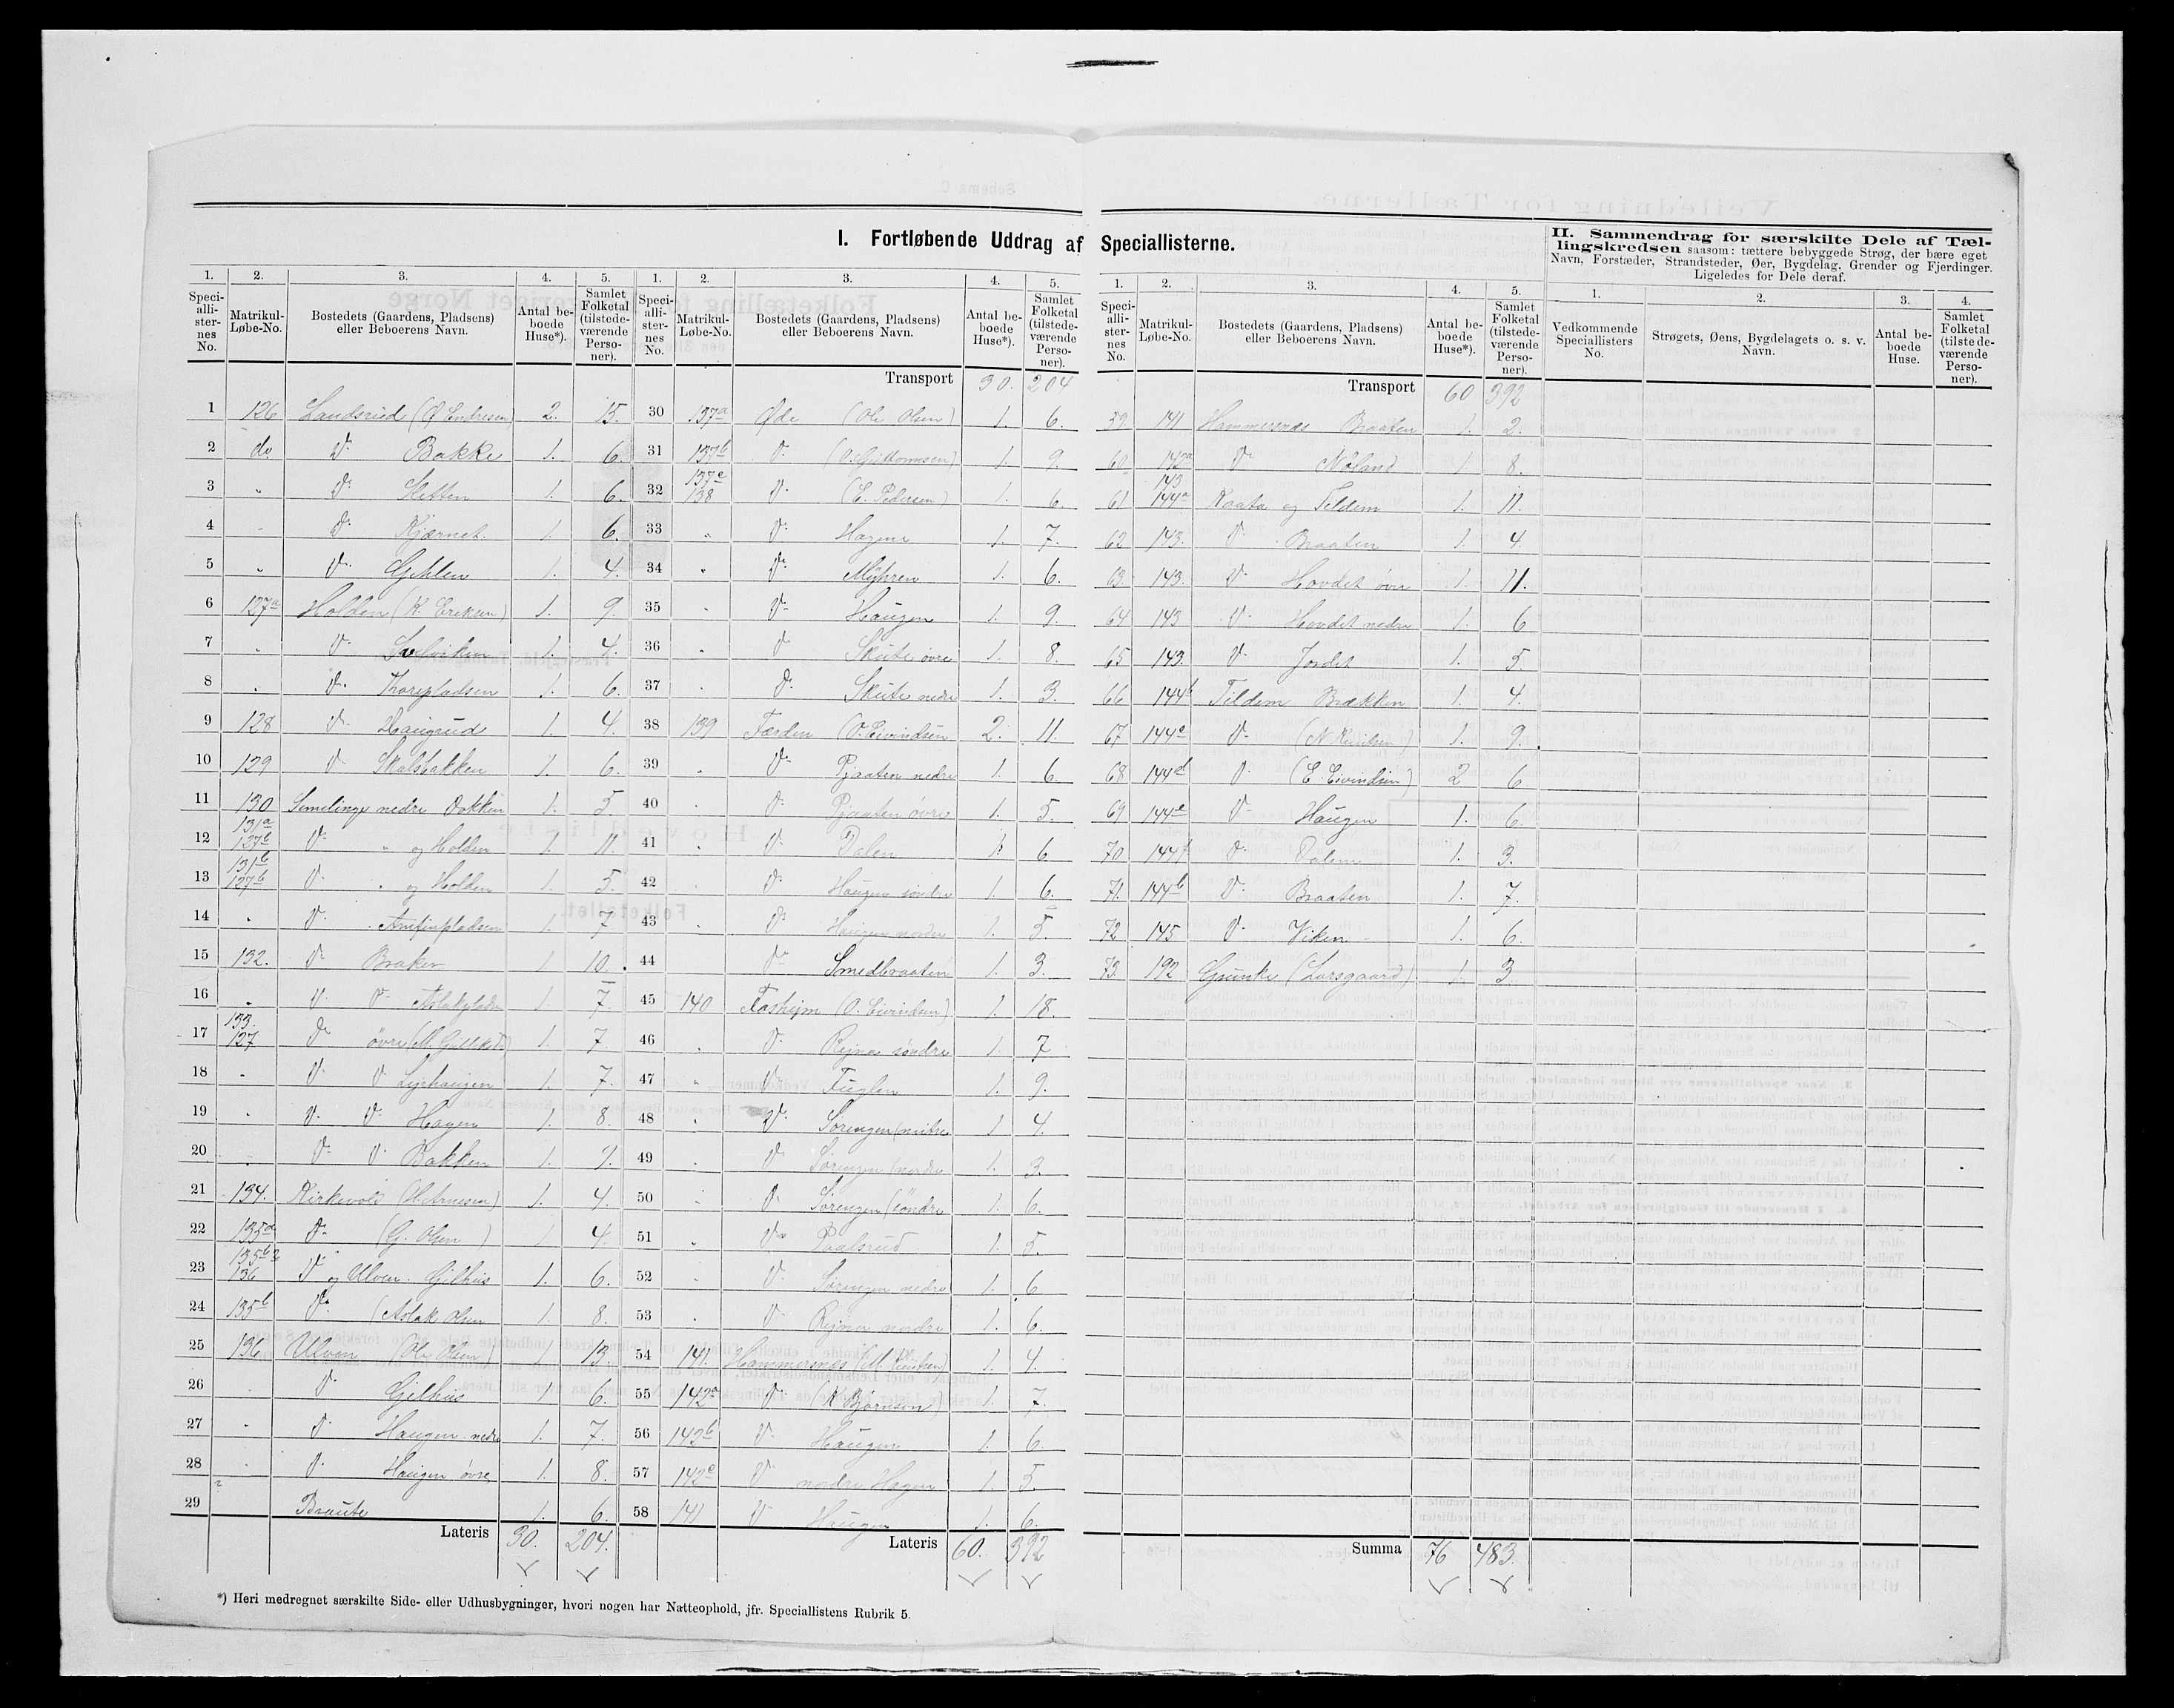 I. Fortløbende Uddrag af Speciallisterne.
II. Sammendrag for særskilte Dele af Tæl-
lingskredsen saasom: tættere bebyggede Strøg, der bære eget
Navn, Forstæder, Strandsteder, Øer, Bygdelag, Grender og Fjerdinger.
Ligeledes for Dele deraf.
1. 2. 3. 4. 5.
Speci-alli-ster-nes No. Matrikul-Løbe-No. Bostedets (Gaardens, Pladsens) eller Beboerens Navn. Antal be-boede Huse*). Samlet Folketal (tilstede-værende Perso-ner).
1 126 Landsrud (Ø. Endresen) 2. 15.
2 do. Do Bakke 1. 6.
3 " Do Sletten 1. 6.
4 " Do Kjærnet 1. 6.
5 " Do 1. 4.
6 127a Holden (K. Eriksen) 1. 9.
7 " Do Solviken 1. 4.
8 " Do Thorepladsen 1. 6.
9 128 Do Haugrud 1. 4.
10 129 Do Skalsbakken 1. 6.
11 130 Semelinge nedre Dokken 1. 5
12 131a 127b Do " og Holden 1. 11.
13 131b 127b Do " og Holden 1. 5.
14 " Do Arnfinpladsen 1. 7
15 132. Do Braker 1 10.
16 " Do Do Aslakpladsen 1. 7.
17 133. 127 Do øvre 1. 7
18 " Do Do 1. 7.
19 " Do Do Hagen 1. 8.
20 " Do Do Bakken 1. 9.
21 134. Kirkevold (H. Arnesen) 1. 4.
22 135a Do (G. Olsen) 1. 4
23 135b2 136 Do og Ulven Gilhus 1. 6.
24 135b Do (Aslak Olsen 1. 8.
25 136 Ulven (Ole Olsen) 1 13.
26 Do Gilhus 1 6.
27 " Do Haugen nedre 1. 7.
28 " Do Haugen øvre 1. 8.
29 Braute 1. 6.
Lateris 30. 204.
1. 2. 3. 4. 5.
Speci-alli-ster-nes No. Matrikul-Løbe-No. Bostedets (Gaardens, Pladsens) eller Beboerens Navn. Antal be-boede Huse*). Samlet Folketal (tilstede-værende Perso-ner).
Transport 30. 204
30 137a Øde (Ole Olsen) 1. 6.
31 137b Do (O. Guttormsen) 1. 9.
32 137c 138 Do (E. Pedersen) 1. 6
33 " Do Hagene 1. 7.
34 " Do Myhren 1. 6.
35 " Do Haugen 1. 9.
36 " Do Skute øvre 1. 8.
37 " Do Skute nedre 1. 3.
38 139 Færden (O. Eivindsen 2. 11.
39 " Do Pjaaten nedre 1. 6.
40 " Do Pjaaten øvre 1. 5.
41 " Do Dalen 1. 6
42 " Do Haugen søndre 1. 6.
43 " Do Haugen nordre 1. 5.
44 Do Smedbraaten 1. 3.
45 140 Fosheim (O. Eivindsen) 1. 18.
46 " Do søndre 1. 7
47 " Do Fuglen 1. 9.
48 " Do Sørengen (midtre 1 4.
49 " Do Sørengen (nordre 1. 3
50 " Do Sørengen (søndre 1. 6.
51 " Do Paalsrud 1. 5.
52 " Do Sørengen nedre 1. 6
53 " Do nedre 1. 6.
54 141. Hammersnæs 1. 4.
55 142a Do (K Bjørnsen) 1. 7.
56 142b Do Haugen 1. 6.
57 142c Do nedre Hagen 1. 5.
58 141 Do Haugen 1. 6.
Lateris 60. 392
1. 2. 3. 4. 5.
Speci-alli-ster-nes No. Matrikul-Løbe-No. Bostedets (Gaardens, Pladsens) eller Beboerens Navn. Antal be-boede Huse*). Samlet Folketal (tilstede-værende Perso-ner).
Transport 60 392
59 141 Hammersnæs Braaten 1. 2.
60 142a Do Nøland 1 8.
61 143 144a Raata og Tildem 1. 11.
62 143. Do Braaten 1. 4.
63 143. Do Hovdet øvre 1. 11.
64 143 Do Hovdet nedre 1. 6
65 143. Do Jordet 1. 5.
66 144b Tildem Brækken 1. 4.
67 144c Do 1. 9.
68 144d Do (E. Eivindsen) 2 6.
69 144e Do Haugen 1. 6.
70 144f Do Dalen 1. 3.
71. 144b Do Braaten 1. 7.
72 145 Do Viken 1. 6.
73. 192 Grunke (Larsgaard) 1. 3
Summa 76 483.
1. 2. 3. 4.
Vedkommende Speciallisters No. Strøgets, Øens, Bygdelagets o. s. v. Navn. Antal be-boede Huse. Samlet Folketal (tilstede-værende Perso-ner).
*) Heri medregnet særskilte Side- eller Udhusbygninger, hvori nogen har Natteophold, jfr. Speciallistens Rubrik 5.